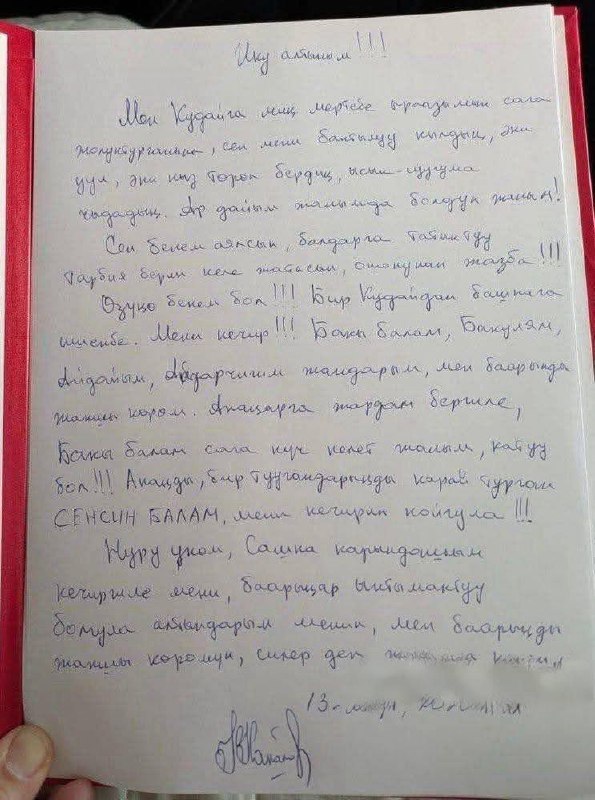 Ику алтыным!!!
Мен Кудайга миң мертебе ыраазымын сага
жолуктурганына, сен мени бактылуу кылдың, эки
уул, эки кыз төрөп бердиң, ысык-суугума
чыдадың. Ар дайым жанымда болдуң жаным!
Сен бекем аялсың, балдарга татыктуу
тарбия берип келе жатасың, ошонундан жазба!!!
Өзүңө бекем бол!!! Бир Кудайдан башкага
ишенбе. Мени кечир!!! Бакы балам, Бакулям,
Айдайым, Айдарчигим жандарым, мен баарыңды
жакшы көрөм. Апаңарга жардам бергиле,
Бакы балам сага күч келет жаным, кайтуу
бол!!! Апаңды, бир туугандарыңды карай турган
СЕНСИҢ БАЛАМ, мени кечирип койгула!!!
Нуру укем, Сашка карындашым
кечиргиле мени, баарыңар ынтымактуу
болгула алтындарым менин, мен баарыңды
жакшы көрөмүн, силер деп
13-